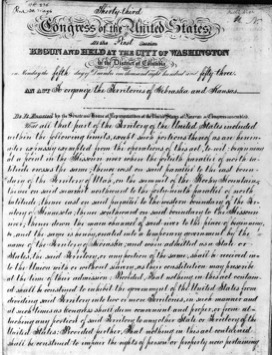 Thirty-third
Congress of the United States
At the First Session
BEGUN AND HELD AT THE CITY OF WASHINGTON
in the District of Columbia
on Monday the fifth day of December one thousand eight hundred and fifty three.
AN ACT To organize the Territories of Nebraska and Kansas.
Be it Enacted by the Senate and House of Representatives of the United States of America in Congress assembled,
That all that part of the Territory of the United States included
within the following limits, except such portions thereof as are herein-
after expressly exempted from the operations of this act, to wit: beginning
at a point in the Missouri river where the fortieth parallel of north la-
titude crosses the same; thence west on said parallel to the east boun-
dary of the Territory of Utah, on the summit of the Rocky Mountains;
thence on said summit northward to the forty-ninth parallel of north
latitude; thence east on said parallel to the western boundary of the Ter-
ritory of Minnesota; thence southward on said boundary to the Missouri
river; thence down the main channel of said river to the place of beginning,
be, and the same is hereby, created into a temporary government by the
name of the Territory of Nebraska; and when admitted as a State or
States, the said Territory, or any portion of the same, shall be received in-
to the Union with or without slavery, as their constitution may prescribe
at the time of their admission: Provided, That nothing in this act contain-
ed shall be construed to inhibit the government of the United States from
dividing said Territory into two or more Territories, in such manner and
at such times as Congress shall deem convenient and proper, or from at-
taching any portion of said Territory to any other State or Territory of the
United States: Provided further, That nothing in this act contained
shall be construed to impair the rights of person or property now pertaining